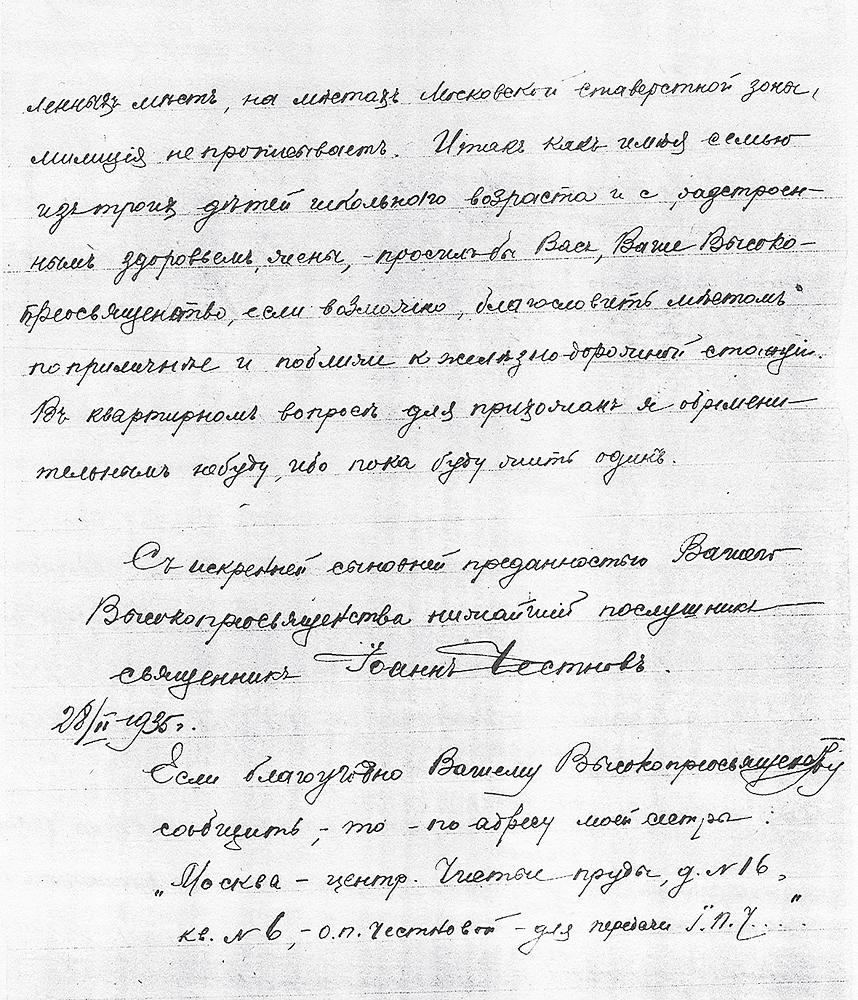 ленныхъ мѣстъ, на мѣстахъ Московской ставерстной зоны,
милиція не прописываетъ. И такъ какъ имѣя семью
изъ троихъ дѣтей школьнаго возраста и с разстроен-
нымъ здоровьемъ жены, - просилъ бы Васъ, Ваше Высоко-
преосвященство, если возможно, благословить мѣстомъ
поприличнѣе и поближе к желѣзно-дорожной станціи.
Въ квартирномъ вопросѣ для прихожанъ я обремени-
тельнымъ не буду, ибо пока буду жить одинъ.
Съ искренней сыновней преданностью Вашего
Высокопреосвященства нижайшій послушникъ
священникъ Іоаннъ Честновъ.
28/II-1935г.
Если благоугодно Вашему Высокопреосвященству
сообщить, - то - по адресу моей сестры:
"Москва - центр. Чистые пруды, д. № 16,
кв. № 6, - О.П. Честновой - для передачи І.П.Ч..."